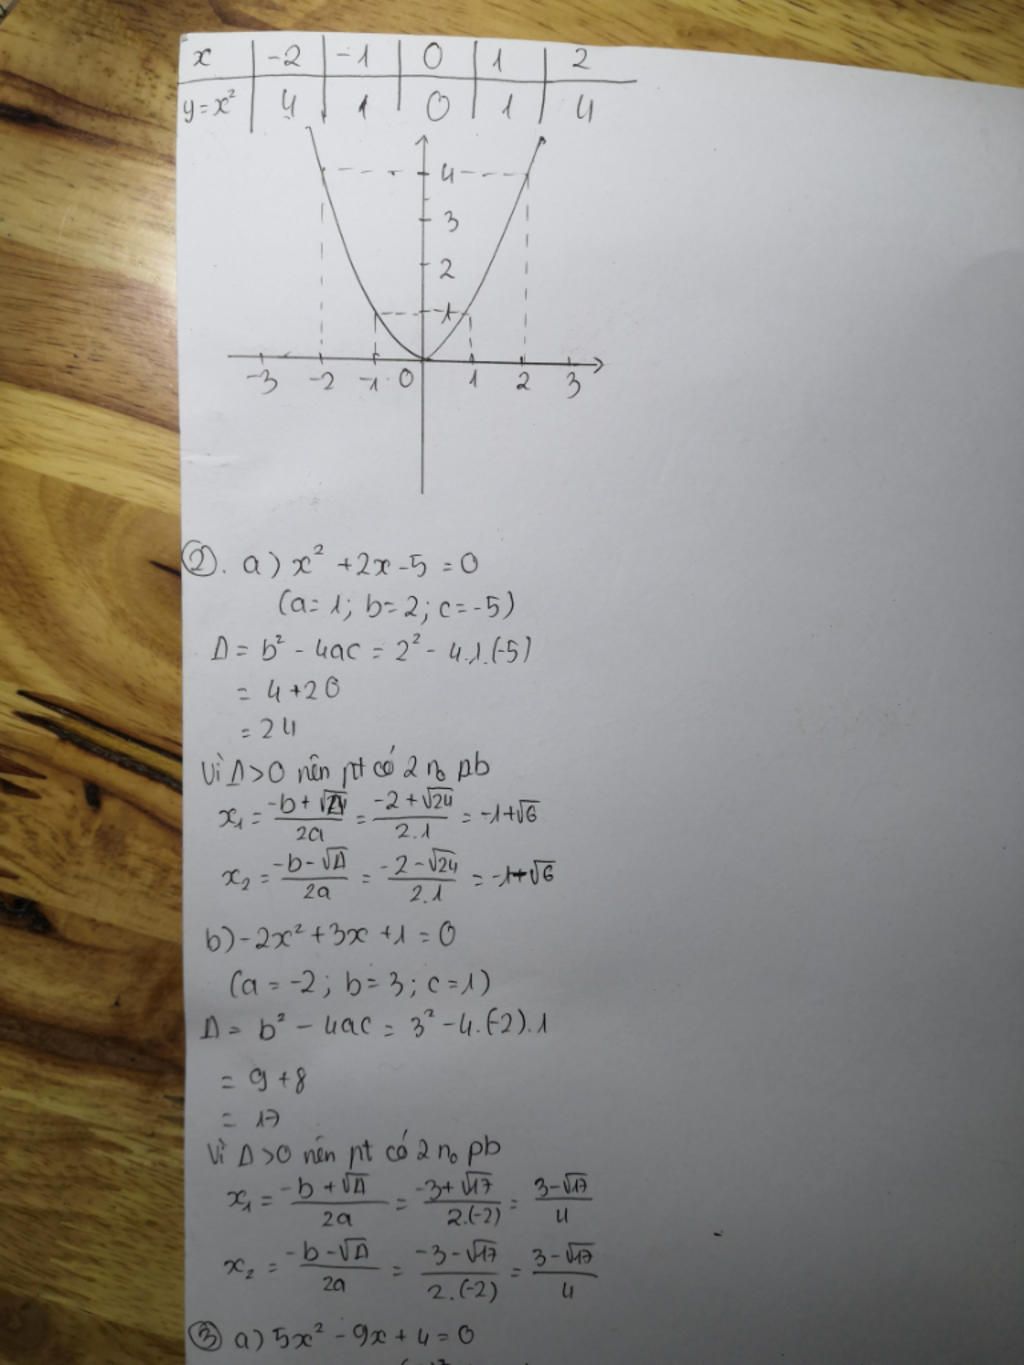 x | -2 | -1 | 0 | 1 | 2
y=x² | 4 | 1 | 0 | 1 | 4
4
3
2
1
-3 -2 -1 0 1 2 3
②. a) x² + 2x - 5 = 0
(a = 1; b = 2; c = -5)
Δ = b² - 4ac = 2² - 4.1.(-5)
= 4 + 20
= 24
Vì Δ > 0 nên pt có 2 no pb
x₁ = (-b + √24)/2a = (-2 + √24)/2.1 = -1 + √6
x₂ = (-b - √Δ)/2a = (-2 - √24)/2.1 = -1 + √6
b) -2x² + 3x + 1 = 0
(a = -2; b = 3; c = 1)
Δ = b² - 4ac = 3² - 4.(-2).1
= 9 + 8
= 17
Vì Δ > 0 nên pt có 2 no pb
x₁ = (-b + √Δ)/2a = (-3 + √17)/2.(-2) = (3 - √17)/4
x₂ = (-b - √Δ)/2a = (-3 - √17)/2.(-2) = (3 - √17)/4
③ a) 5x² - 9x + 4 = 0